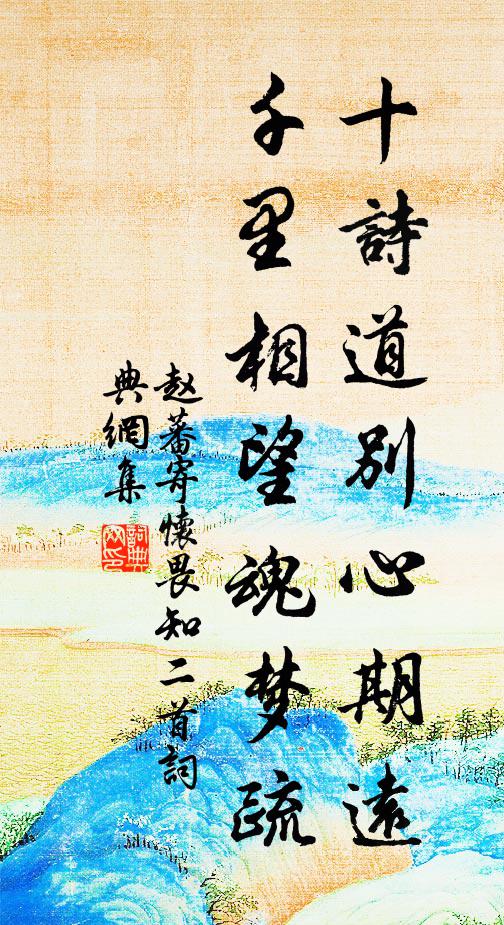 十詩道別心期遠
千里相望魂梦疏
赵蕃寄懷畏知二首詞
典網集
詞典
网印